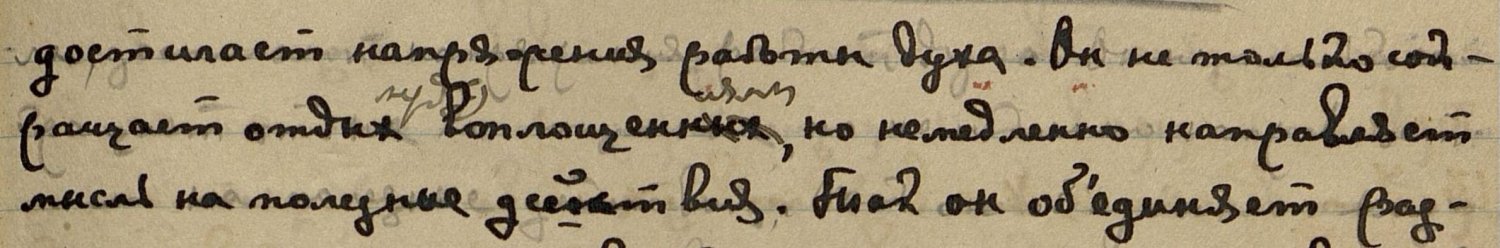 достигает напряжения работы духа. Он не только сок-
ращает отдых воплощенных, но немедленно направляет
мысль на полезные действия. Так он об'единяет раз-